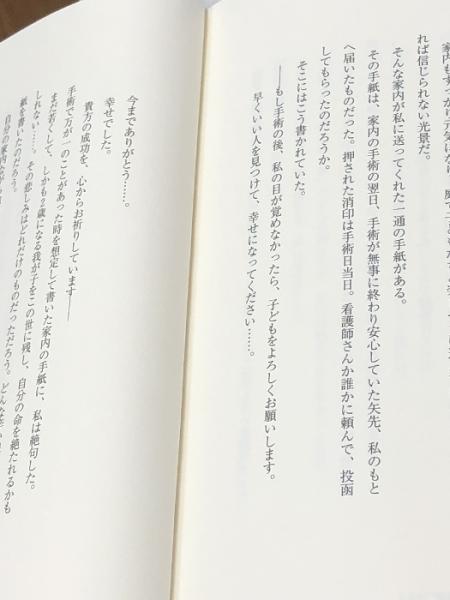 家内もすっかり元気になり、庭で
れば信じられない光景だ。
そんな家内が私に送ってくれた一通の手紙がある。
その手紙は、家内の手術の翌日、手術が無事に終わり安心していた矢先、私のもと
へ届いたものだった。押された消印は手術日当日。看護師さんか誰かに頼んで、投函
してもらったのだろうか。
そこにはこう書かれていた。
――もし手術の後、私の目が覚めなかったら、子どもをよろしくお願いします。
早くいい人を見つけて、幸せになってください……。
今までありがとう……。
幸せでした。
貴方の成功を、心からお祈りしています――
手術で万が一のことがあった時を想定して書いた家内の手紙に、私は絶句した。
まだ若くして、しかも2歳になる我が子をこの世に残し、自分の命を絶たれるかも
しれない……。その悲しみはどれだけのものだっただろう。どんな
紙を書いたのだろう。
自分の家内ながら